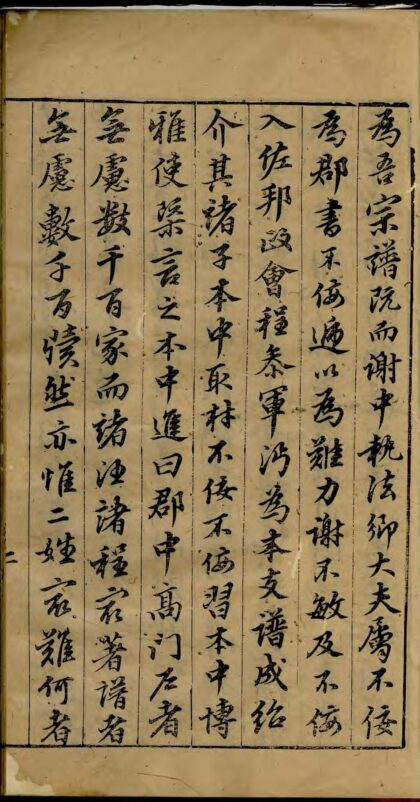 為吾宗譜既而謝中執法卿大夫屬不佞
為郡書不佞遞以為難力謝不敏及不佞
入佐邦政會程參軍沔為本支譜成紹
介其諸子本中取材不佞不佞習本中博
雅使槩言之本中進曰郡中高門右者
無慮數千百家而諸汪諸程最著譜者
無慮數千百牘然亦惟二姓最難何者
二